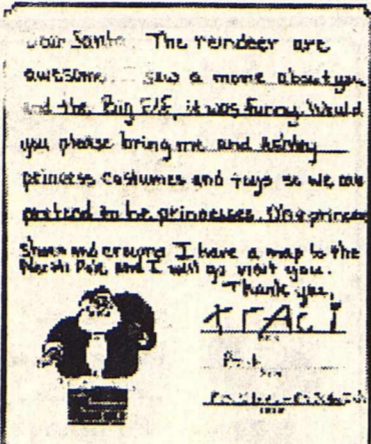 Dear Santa The reindeer are
awesome. saw a movie about you
and the Big Elf, it was funny. Would
you please bring me and Ashley
princess costumes and toys so we can
pretend to be princesses.
shoes and crowns I have a map to the
North Pole and I will go visit you.
Thank you,
TRACI